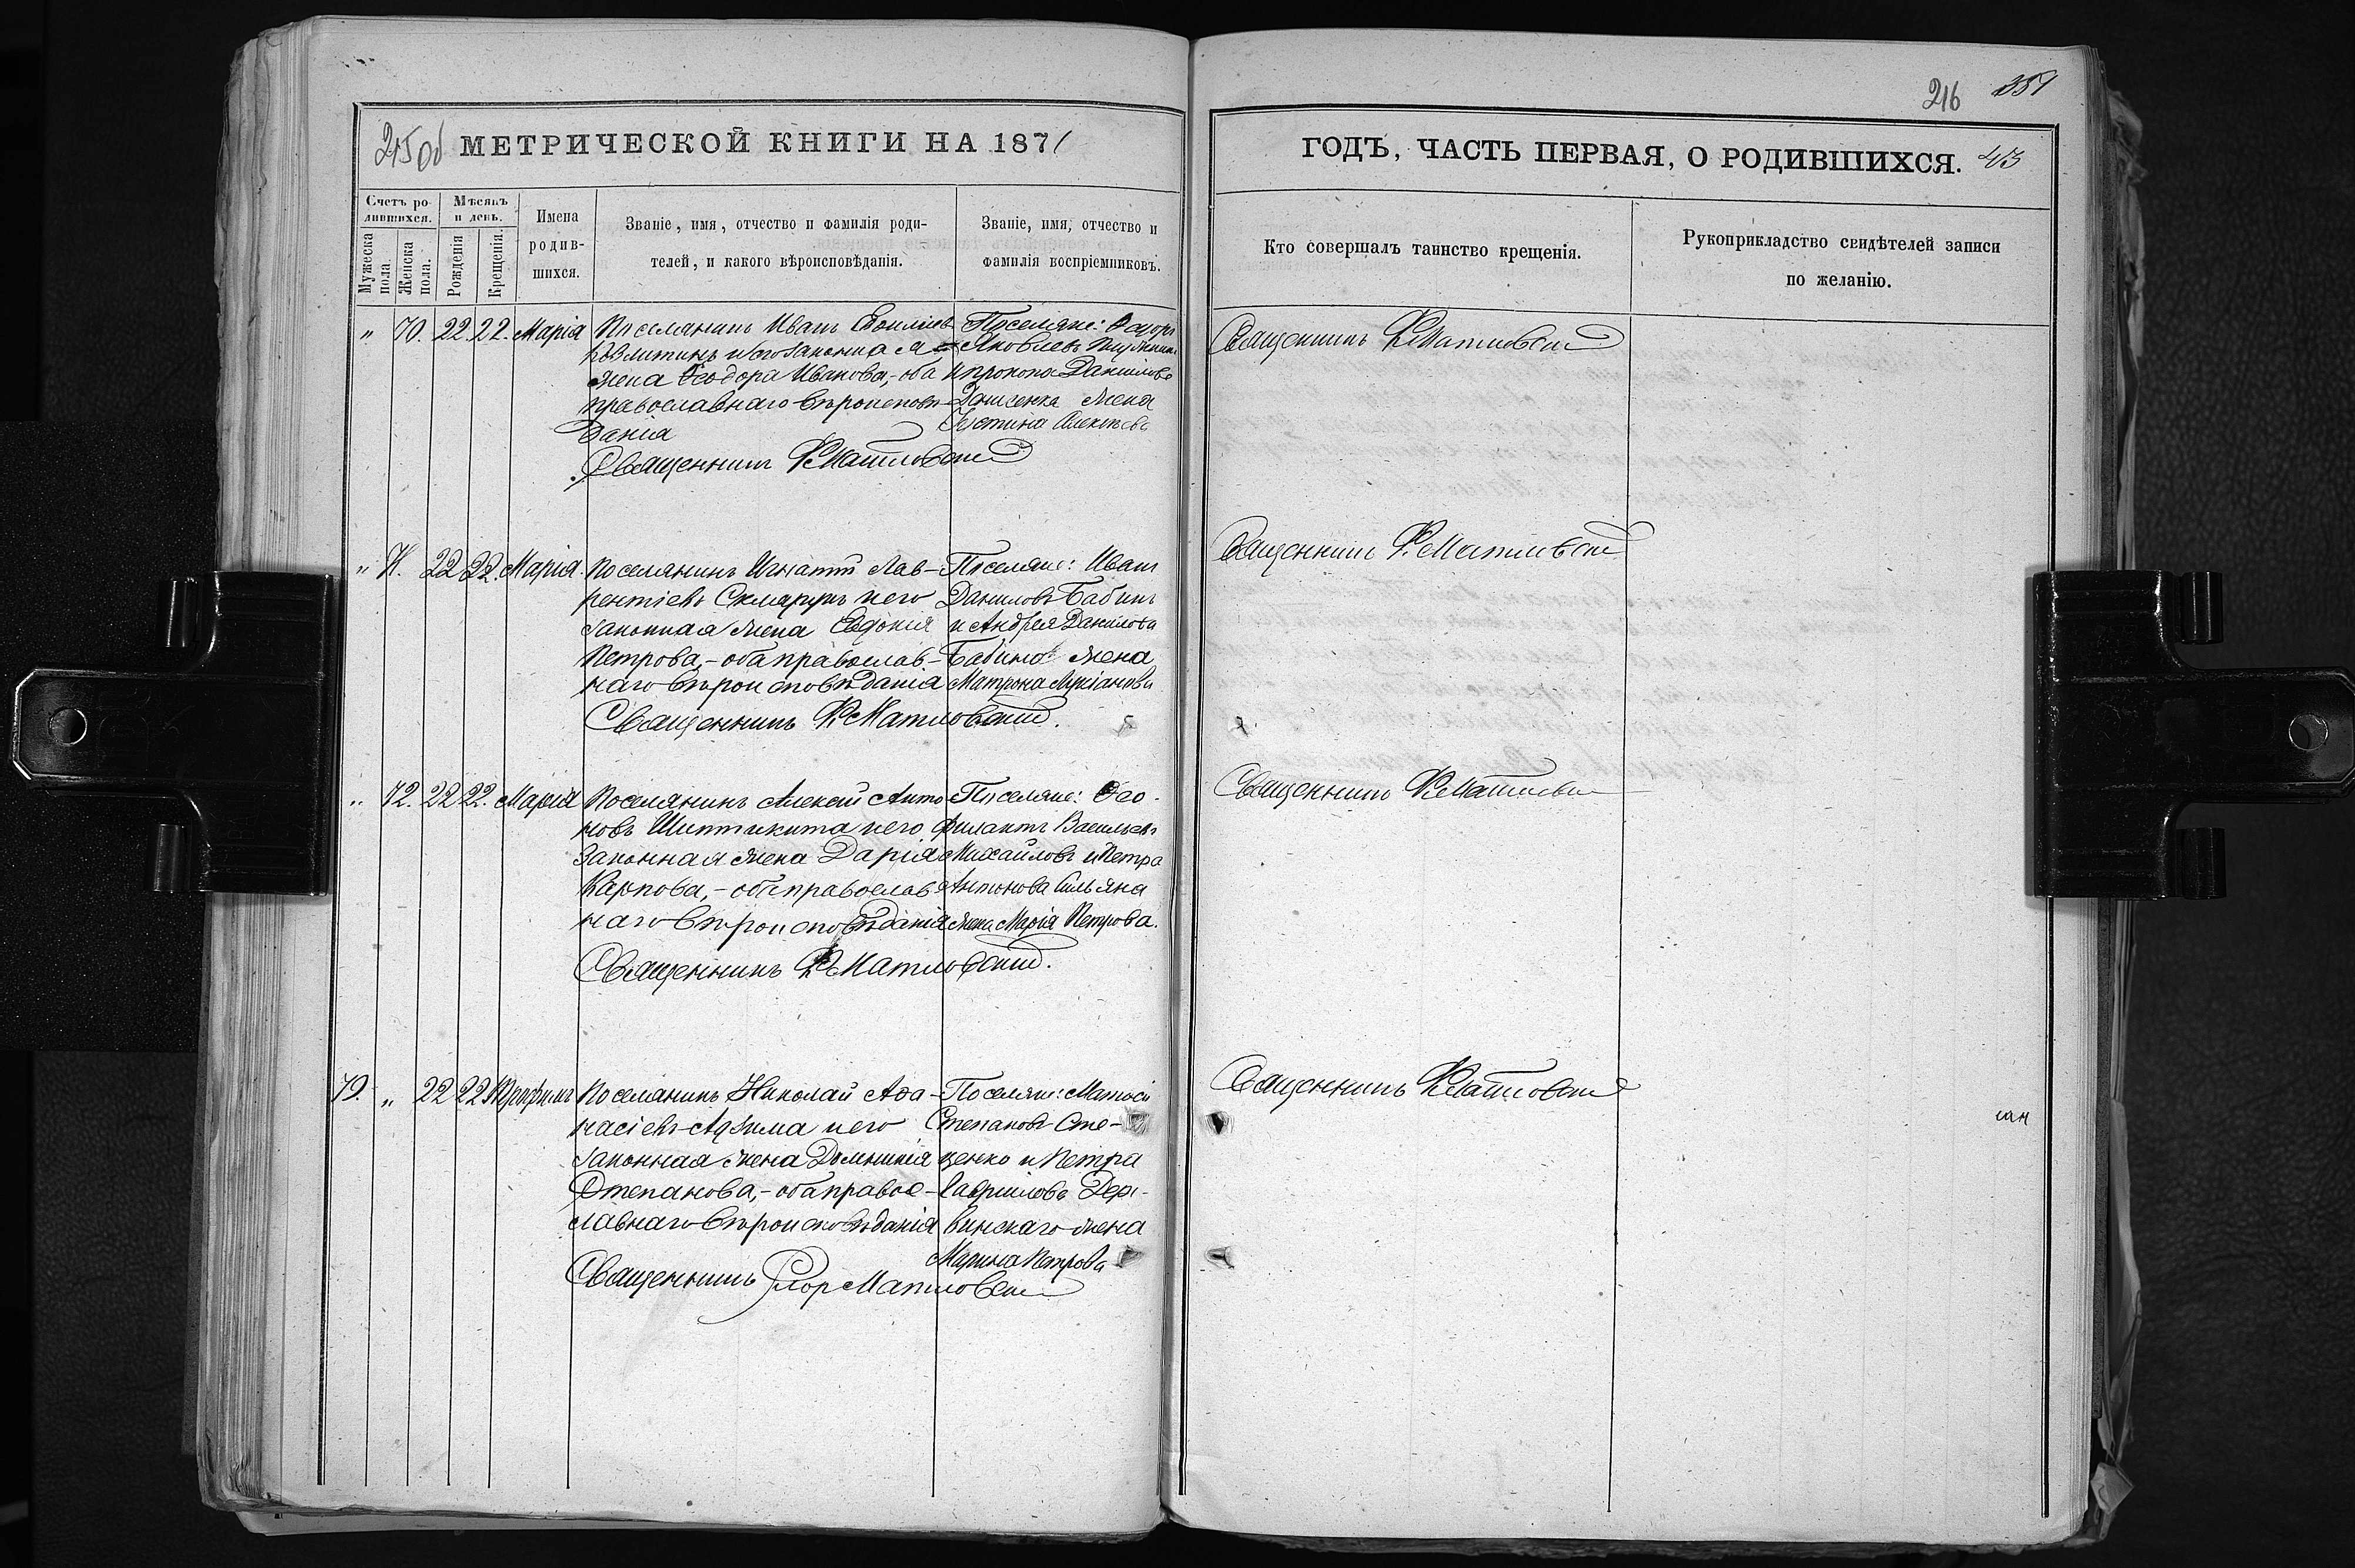 215 об
МЕТРИЧЕСКОЙ КНИГИ НА 1871
Счетъ родившихся.
Мѣсяцъ и день.
Мужеска пола.
Женска пола.
Рожденія
Крещенія.
Имена родившихся.
Званіе, имя, отчество и фамилія роди-
телей, и какого вѣроисповѣданія.
Званіе, имя, отчество и
фамилія воспріемниковъ.
" 70. 22 22. Марія
Поселянинъ Иванъ
и его законна
жена Ѳеодора Иванова,- оба
православнаго вѣроисповѣ-
данія
Священникъ Ф. Матковскій
Поселяне: Ѳедоръ
Яковлевъ
и Прокопа Данилова
жена
Устина Алексѣева
" 71. 22 22. Марія.
Поселянинъ Игнатій Лав-
рентіевъ Скляръ и его
законная жена Евдокія
Петрова,- оба православ-
наго вѣроисповѣданія
Священникъ Ф. Матковскій.
Поселяне: Иванъ
Даниловъ Бабинъ
и Андрея Данилова
Бабина жена
Матрона Лукіанова
" 72. 22 22. Марія
Поселянинъ Алексѣй Анто-
новъ и его
законная жена Дарія
Карпова,- оба православ-
наго вѣроисповѣданія
Священникъ Ф. Матковскій.
Поселяне: Ѳео-
филактъ Васильевъ
Михайловъ и Петра
Антонова
жена Марія Петрова.
79. " 22 22 Трофимъ
Поселянинъ Николай Аѳа-
насіевъ и его
законная жена Домникія
Степанова,- оба правос-
лавнаго вѣроисповѣданія
Священникъ Флор Матковскій
Поселяне: Матѳій
Степановъ Сте-
ценко и Петра
Гаврилова Дер-
винскаго жена
Марина Петрова
216 351
ГОДЪ, ЧАСТЬ ПЕРВАЯ, О РОДИВШИХСЯ.
Кто совершалъ таинство крещенія.
Рукоприкладство свидѣтелей записи
по желанію.
Священникъ Ф. Матковскій
Священникъ Ф. Матковскій
Священникъ Ф. Матковскій
Священникъ Ф. Матковскій